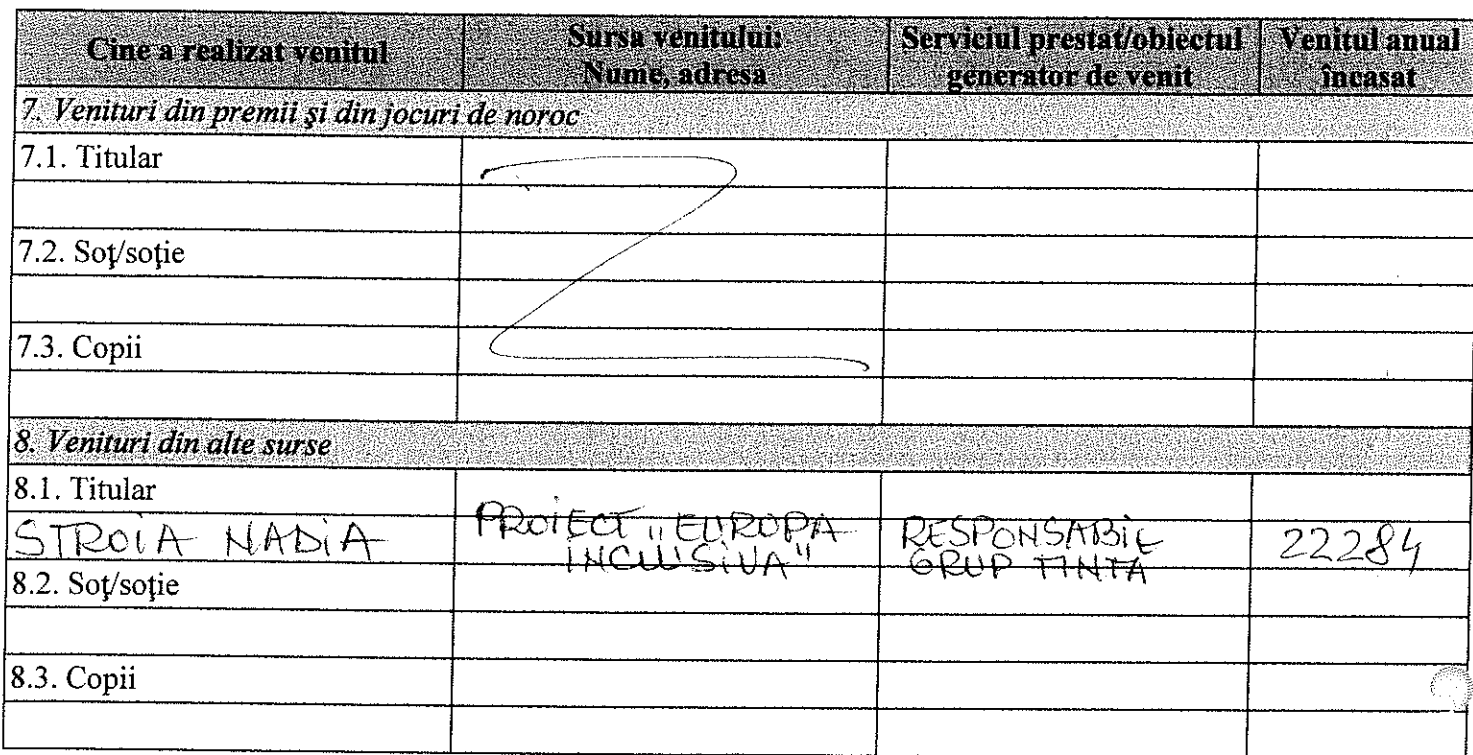 Cine a realizat venitul
Sursa venitului:
Nume, adresa
Serviciul prestat/obiectul
generator de venit
Venitul anual
încasat
7. Venituri din premii şi din jocuri de noroc
7.1. Titular
7.2. Soţ/soţie
7.3. Copii
8. Venituri din alte surse
8.1. Titular
STROIA NADIA
PROIECT "EUROPA
INCLUSIVA"
RESPONSABIL
GRUP TINTA
22284
8.2. Soţ/soţie
8.3. Copii